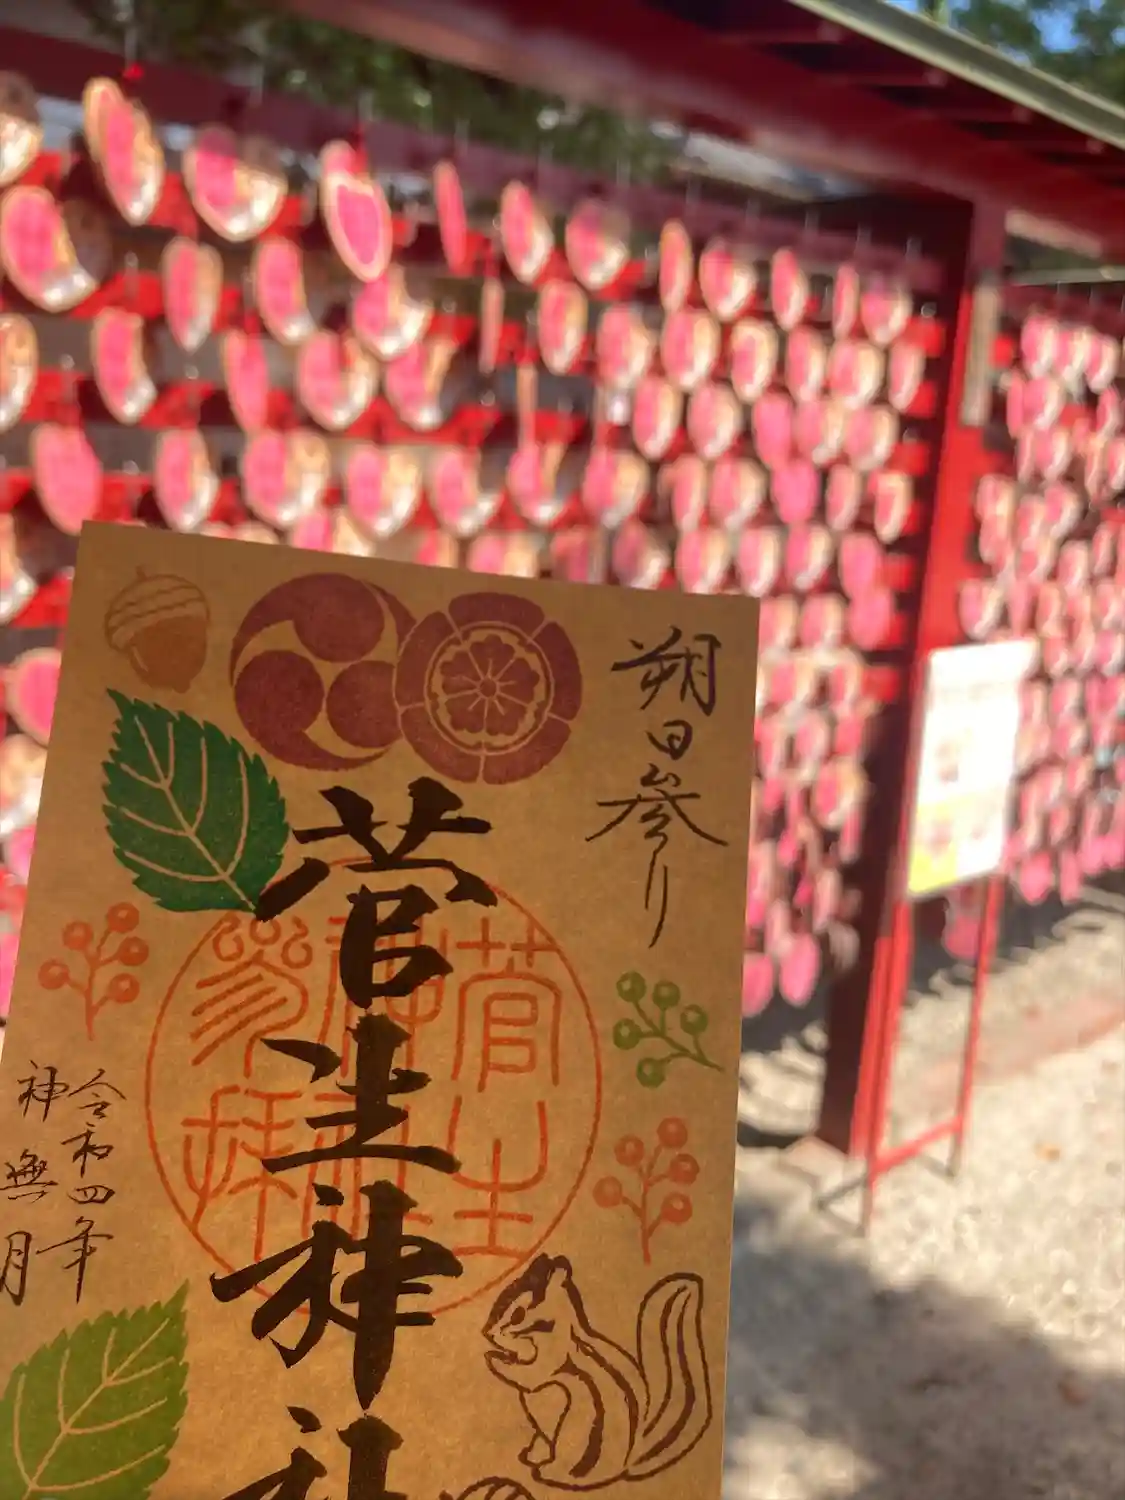 朔日参り
菅生神社
菅生
神社
参拝
令和四年
神無月